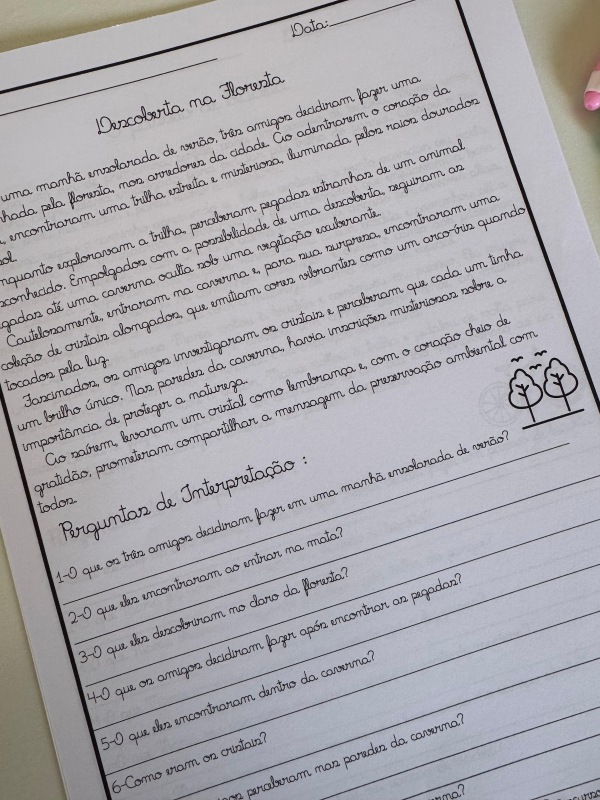 Data:
Descoberta na Floresta
uma manhã ensolarada de verão, três amigos decidiram fazer uma
nhada pela floresta, nos arredores da cidade. Ao adentrarem o coração da
, encontraram uma trilha estreita e misteriosa, iluminada pelos raios dourados
sol.
nquanto exploravam a trilha, perceberam pegadas estranhas de um animal
sconhecido. Empolgados com a possibilidade de uma descoberta, seguiram as
gadas até uma caverna oculta sob uma vegetação exuberante.
Cautelosamente, entraram na caverna e, para sua surpresa, encontraram uma
coleção de cristais alongados, que emitiam cores vibrantes como um arco-íris quando
tocados pela luz.
Fascinados, os amigos investigaram os cristais e perceberam que cada um tinha
um brilho único. Nas paredes da caverna, havia inscrições misteriosas sobre a
importância de proteger a natureza.
Ao saírem, levaram um cristal como lembrança e, com o coração cheio de
gratidão, prometeram compartilhar a mensagem da preservação ambiental com
todos.
Perguntas de Interpretação :
1-O que os três amigos decidiram fazer em uma manhã ensolarada de verão?
2-O que eles encontraram ao entrar na mata?
3-O que eles descobriram no claro da floresta?
4-O que os amigos decidiram fazer após encontrar as pegadas?
5-O que eles encontraram dentro da caverna?
6-Como eram os cristais?
perceberam nas paredes da caverna?